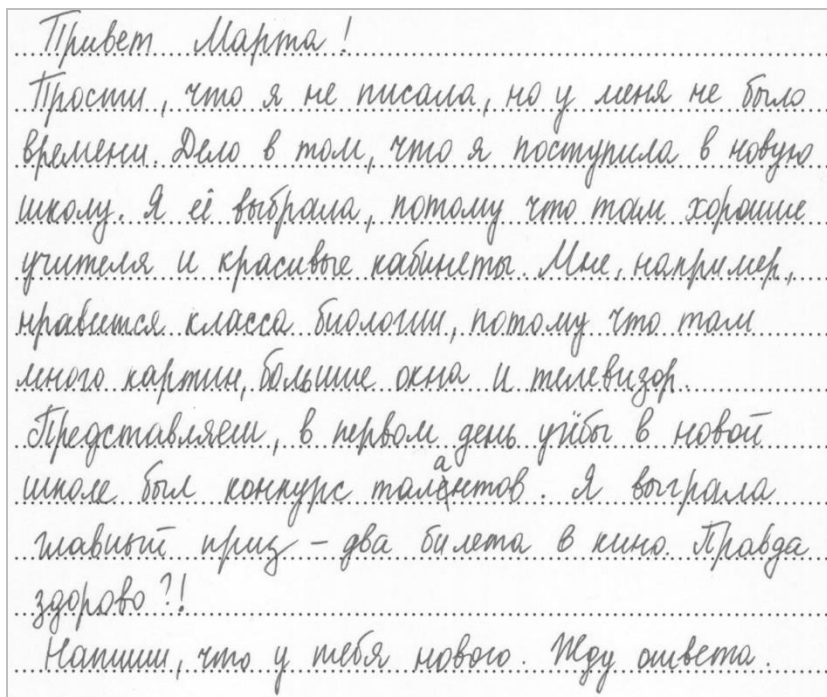 Привет Марта!
Прости, что я не писала, но у меня не было
времени. Дело в том, что я поступила в новую
школу. Я её выбрала, потому что там хорошие
учителя и красивые кабинеты. Мне, например,
нравится класса биологии, потому что там
много картин, большие окна и телевизор.
Представляеш, в первом день учёбы в новой
школе был конкурс талантов. Я выграла
главный приз – два билета в кино. Правда
здорово?!
Напиши, что у тебя нового. Жду ответа.